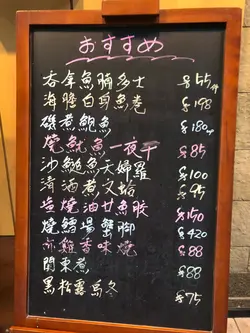 おすすめ
吞拿魚腩多士 $55/件
海膽白身魚卷 $198
磯煮鮑魚 $180/隻
燒魷魚一夜干 $85
沙鯭魚天婦羅 $100
清酒煮文蛤 $95
塩燒油甘魚鮫 $150
燒鱈場蟹腳 $420
赤雞香味燒 $88
関東煮 $88
黑松露烏冬 $75